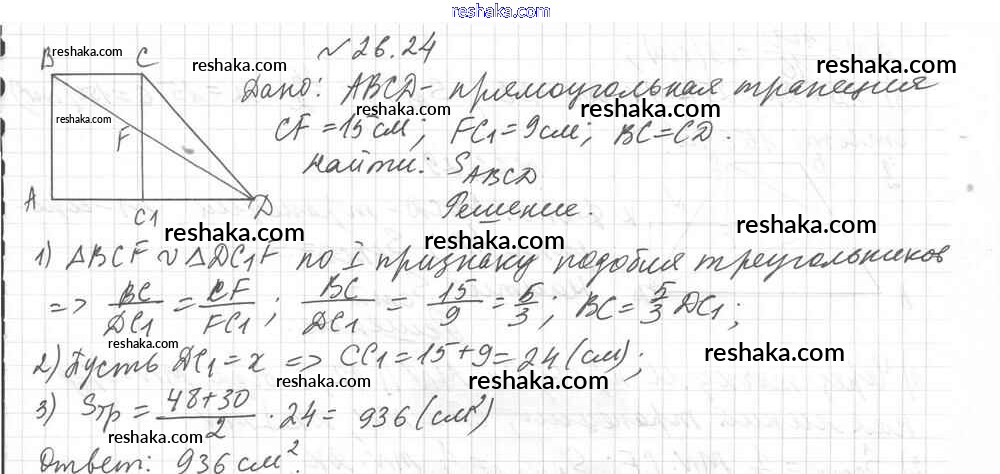 reshaka.com
№ 26.24
Дано: ABCD - прямоугольная трапеция
CF = 15 см; FC1 = 9 см; BC = CD.
Найти: S ABCD
Решение.
B C
F
A C1 D
1) ΔBCF ∾ ΔDC1F по I признаку подобия треугольников
=> BC/DC1 = CF/FC1; BC/DC1 = 15/9 = 5/3; BC = 5/3 DC1;
2) Пусть DC1 = x => CC1 = 15 + 9 = 24 (см);
3) Sтр = (48+30)/2 · 24 = 936 (см²)
Ответ: 936 см².
reshaka.com
reshaka.com
reshaka.com
reshaka.com
reshaka.com
reshaka.com
reshaka.com
reshaka.com
reshaka.com
reshaka.com
reshaka.com
reshaka.com
reshaka.com
reshaka.com